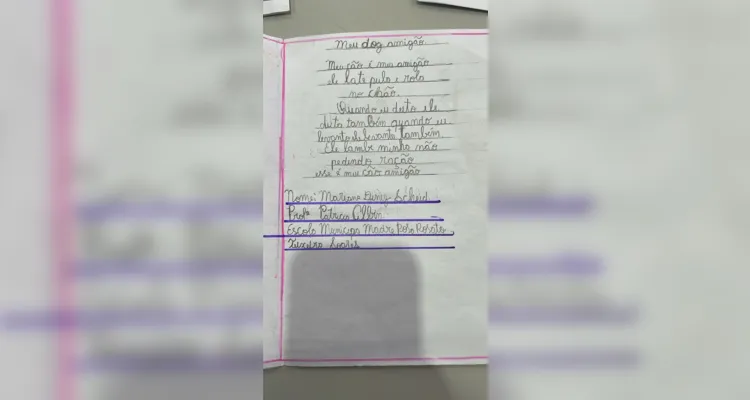 Meu dog amigão
Meu cão é meu amigão
ele late pula e rola
no chão.
Quando eu deito ele
deita também quando eu
levanto ele levanta também
Ele lambe minha mão
pedindo ração
esse é meu cão amigão
Nome: Mariana
Profª Patrica
Escola Municipa Madre
Teixeira Soares